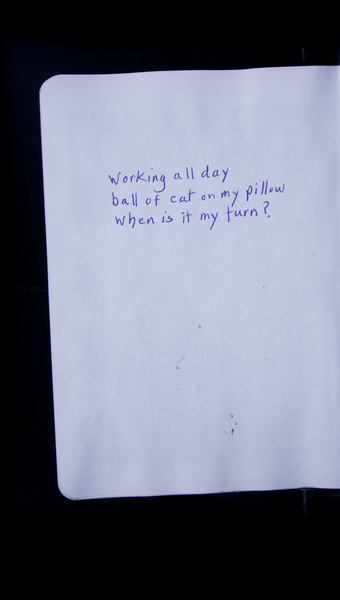 Working all day
ball of cat on my pillow
when is it my turn?